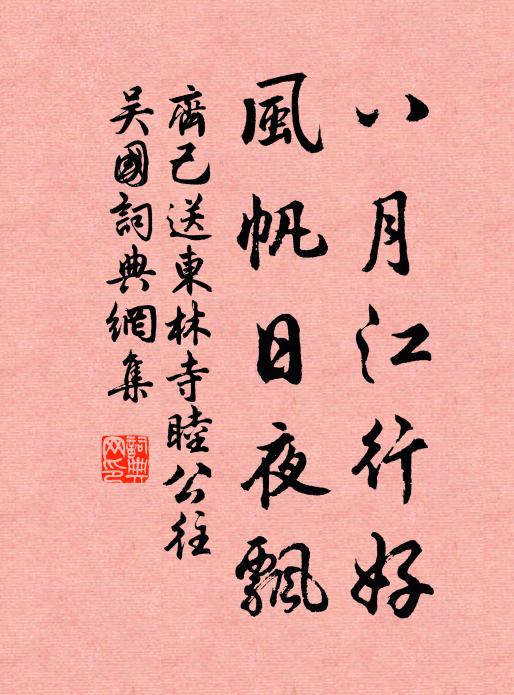 八月江行好
風帆日夜飄
齊己送東林寺睦公往
吳國詞典網集
詞典
网印